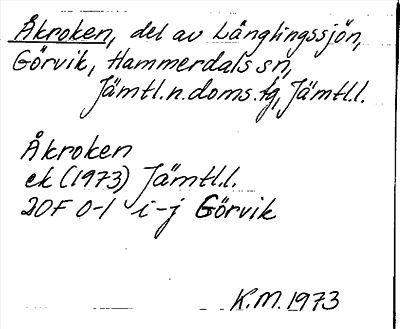 Åkroken, del av Långlingssjön,
Görvik, Hammerdals sn,
Jämtl.n.doms.tg, Jämtl.l.
Åkroken
ek (1973) Jämtl.l.
20F 0-1 i-j Görvik
K.M. 1973